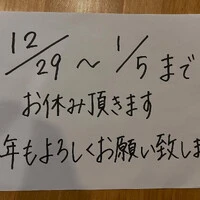 12/29～1/5まで
お休み頂きます
年もよろしくお願い致しま